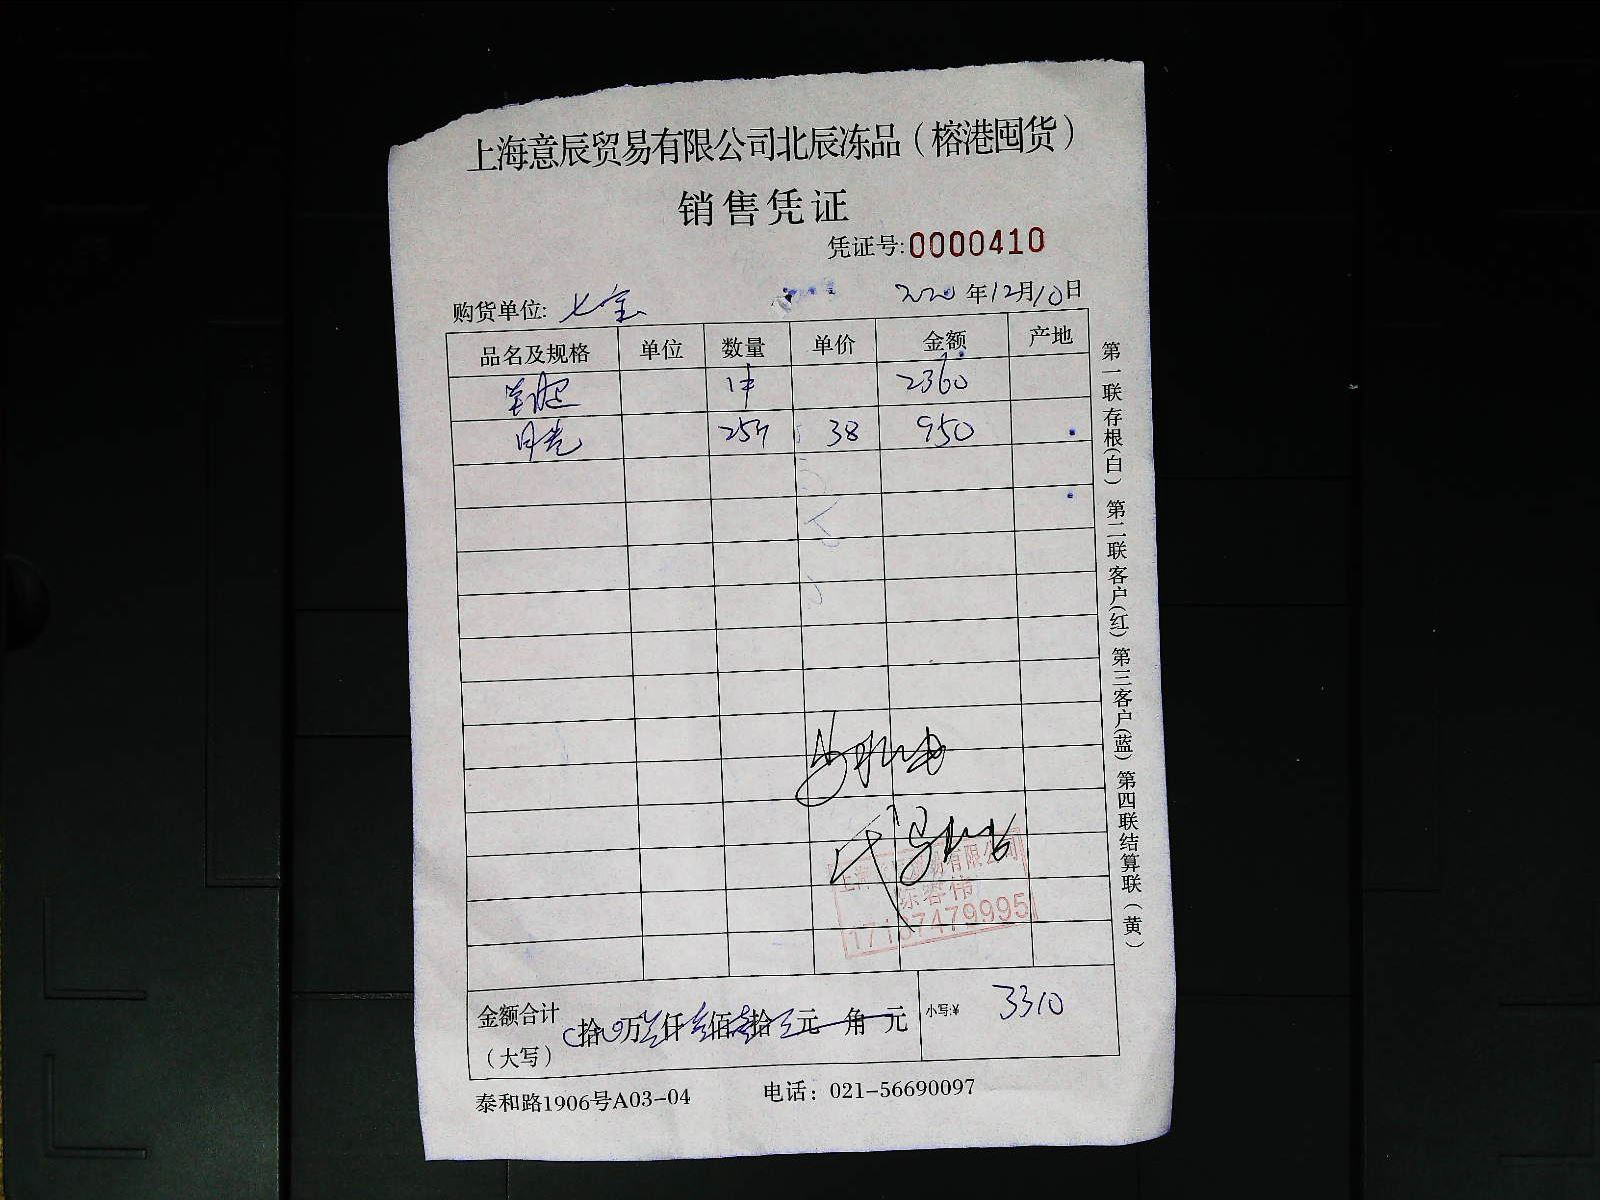 上海意辰贸易有限公司北辰冻品（榕港囤货）
销售凭证
凭证号:0000410
购货单位: 七宝
2020年12月10日
品名及规格 单位 数量 单价 金额 产地
1件 2360
25斤 38 950
第一联存根(白) 第二联客户(红) 第三客户(蓝) 第四联结算联(黄)
有限公司
17137479995
金额合计 拾 万 仟 佰 拾 元 角 元 小写:¥ 3310
（大写）
泰和路1906号A03-04 电话：021-56690097